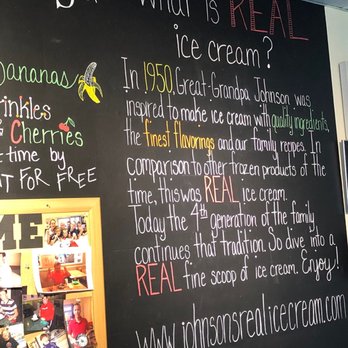 What is REAL
ice cream?
In 1950, Great-Grandpa Johnson was
inspired to make ice cream with quality ingredients,
the finest flavorings and our family recipes. In
comparison to other frozen products of the
time, this was REAL ice cream.
Today the 4th generation of the family
continues that tradition. So dive into a
REAL fine scoop of ice cream. Enjoy!
www.johnsonsrealicecream.com
Bananas
Cherries
time by
FOR FREE
ME